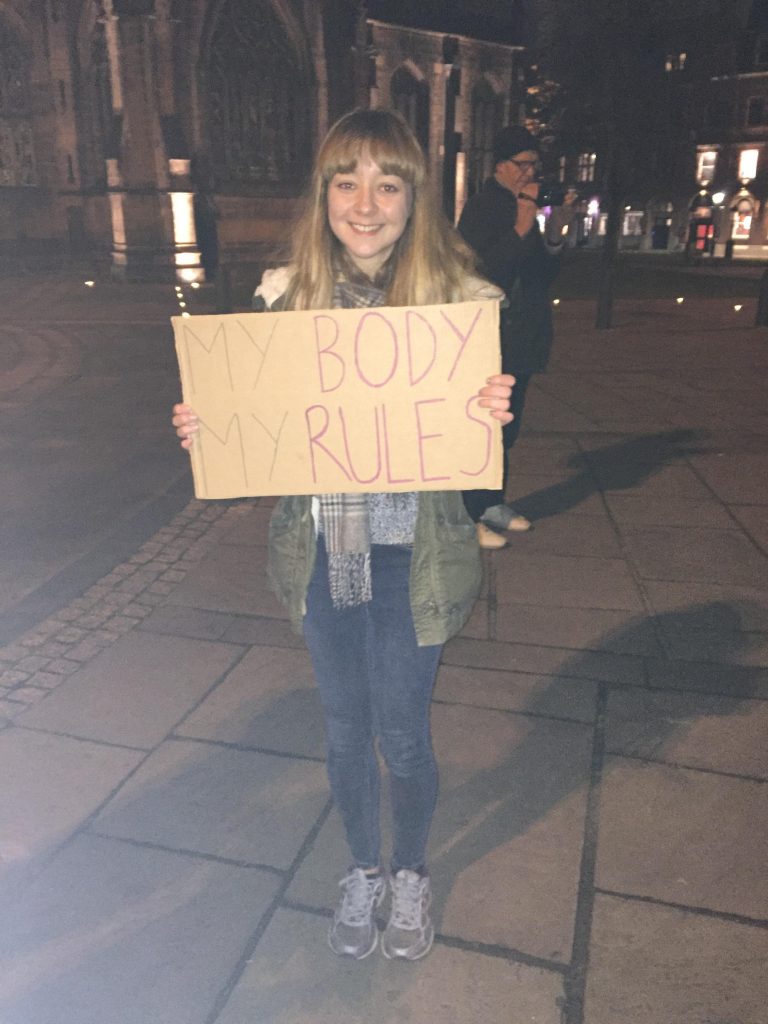 MY BODY
MY RULES